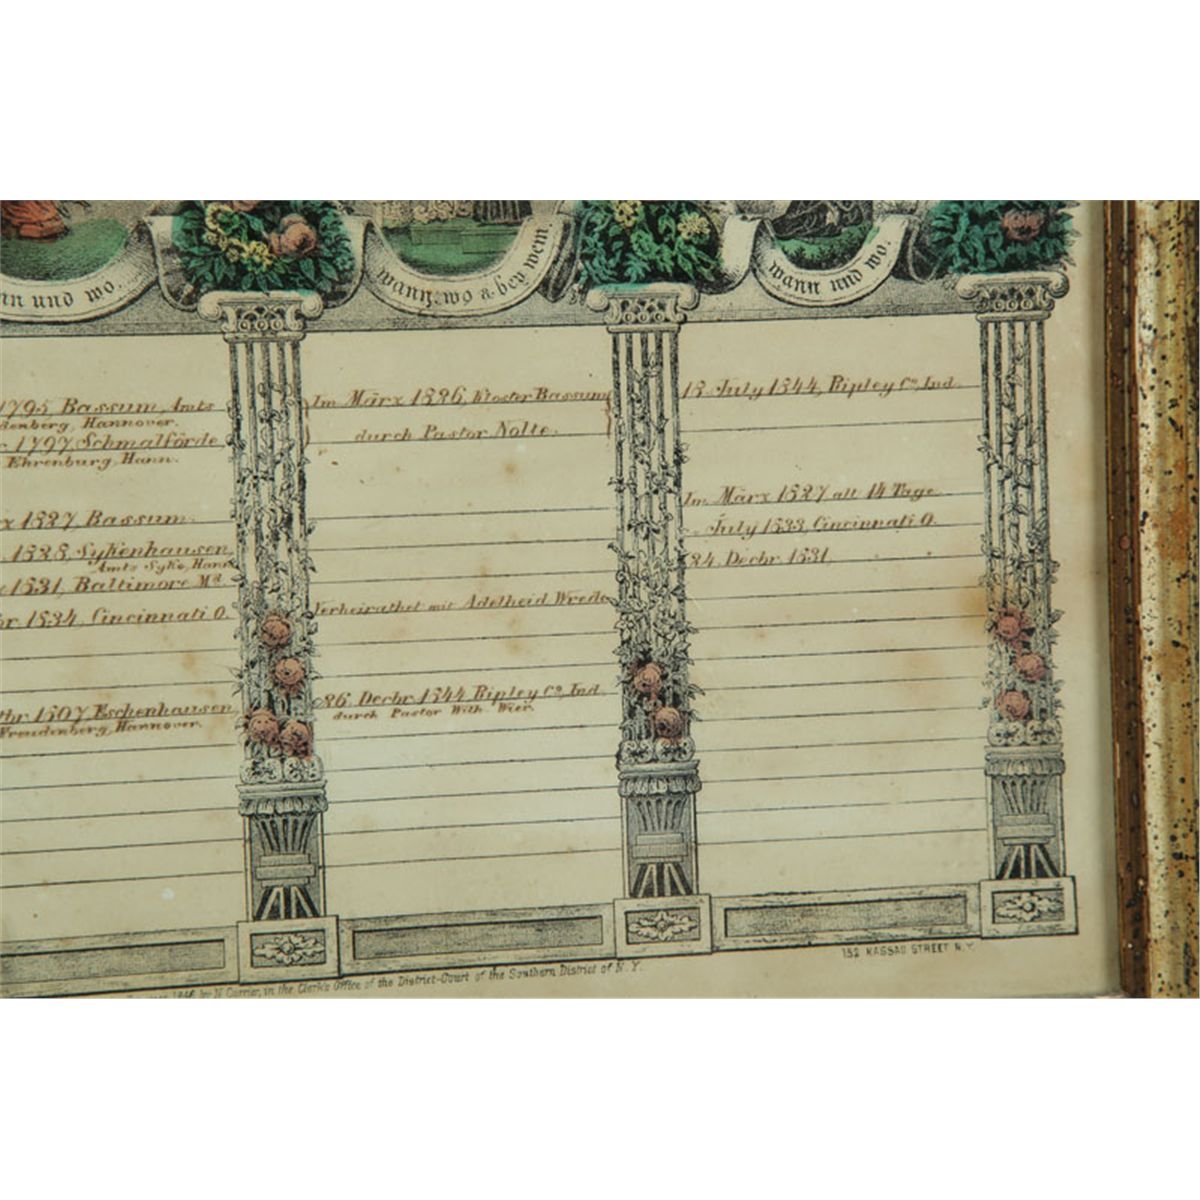 nn und wo.
wann, wo & bey wem.
wann und wo.
1795 Bassum, Amts
denberg, Hannover.
1797, Schmalförde
Ehrenburg, Hann.
1827 Bassum.
1828, Sykenhausen,
Amts Syke, Hann
1831, Baltimore Md.
br 1834, Cincinnati O.
br. 1807, Eschenhausen
Freudenberg, Hannover.
Im März 1826, Kloster Bassum
durch Pastor Nolte.
Verheirathet mit Adelheid Wrede
26. Decbr. 1844, Ripley Co. Ind.
durch Pastor Wilh. Wier.
July 1844, Ripley Co. Ind.
Im März 1827 alt 14 Tage.
July 1833, Cincinnati O.
24. Decbr. 1831,
1846 by N. Currier, in the Clerk's Office of the District-Court of the Southern District of N. Y.
152 NASSAU STREET N.Y.